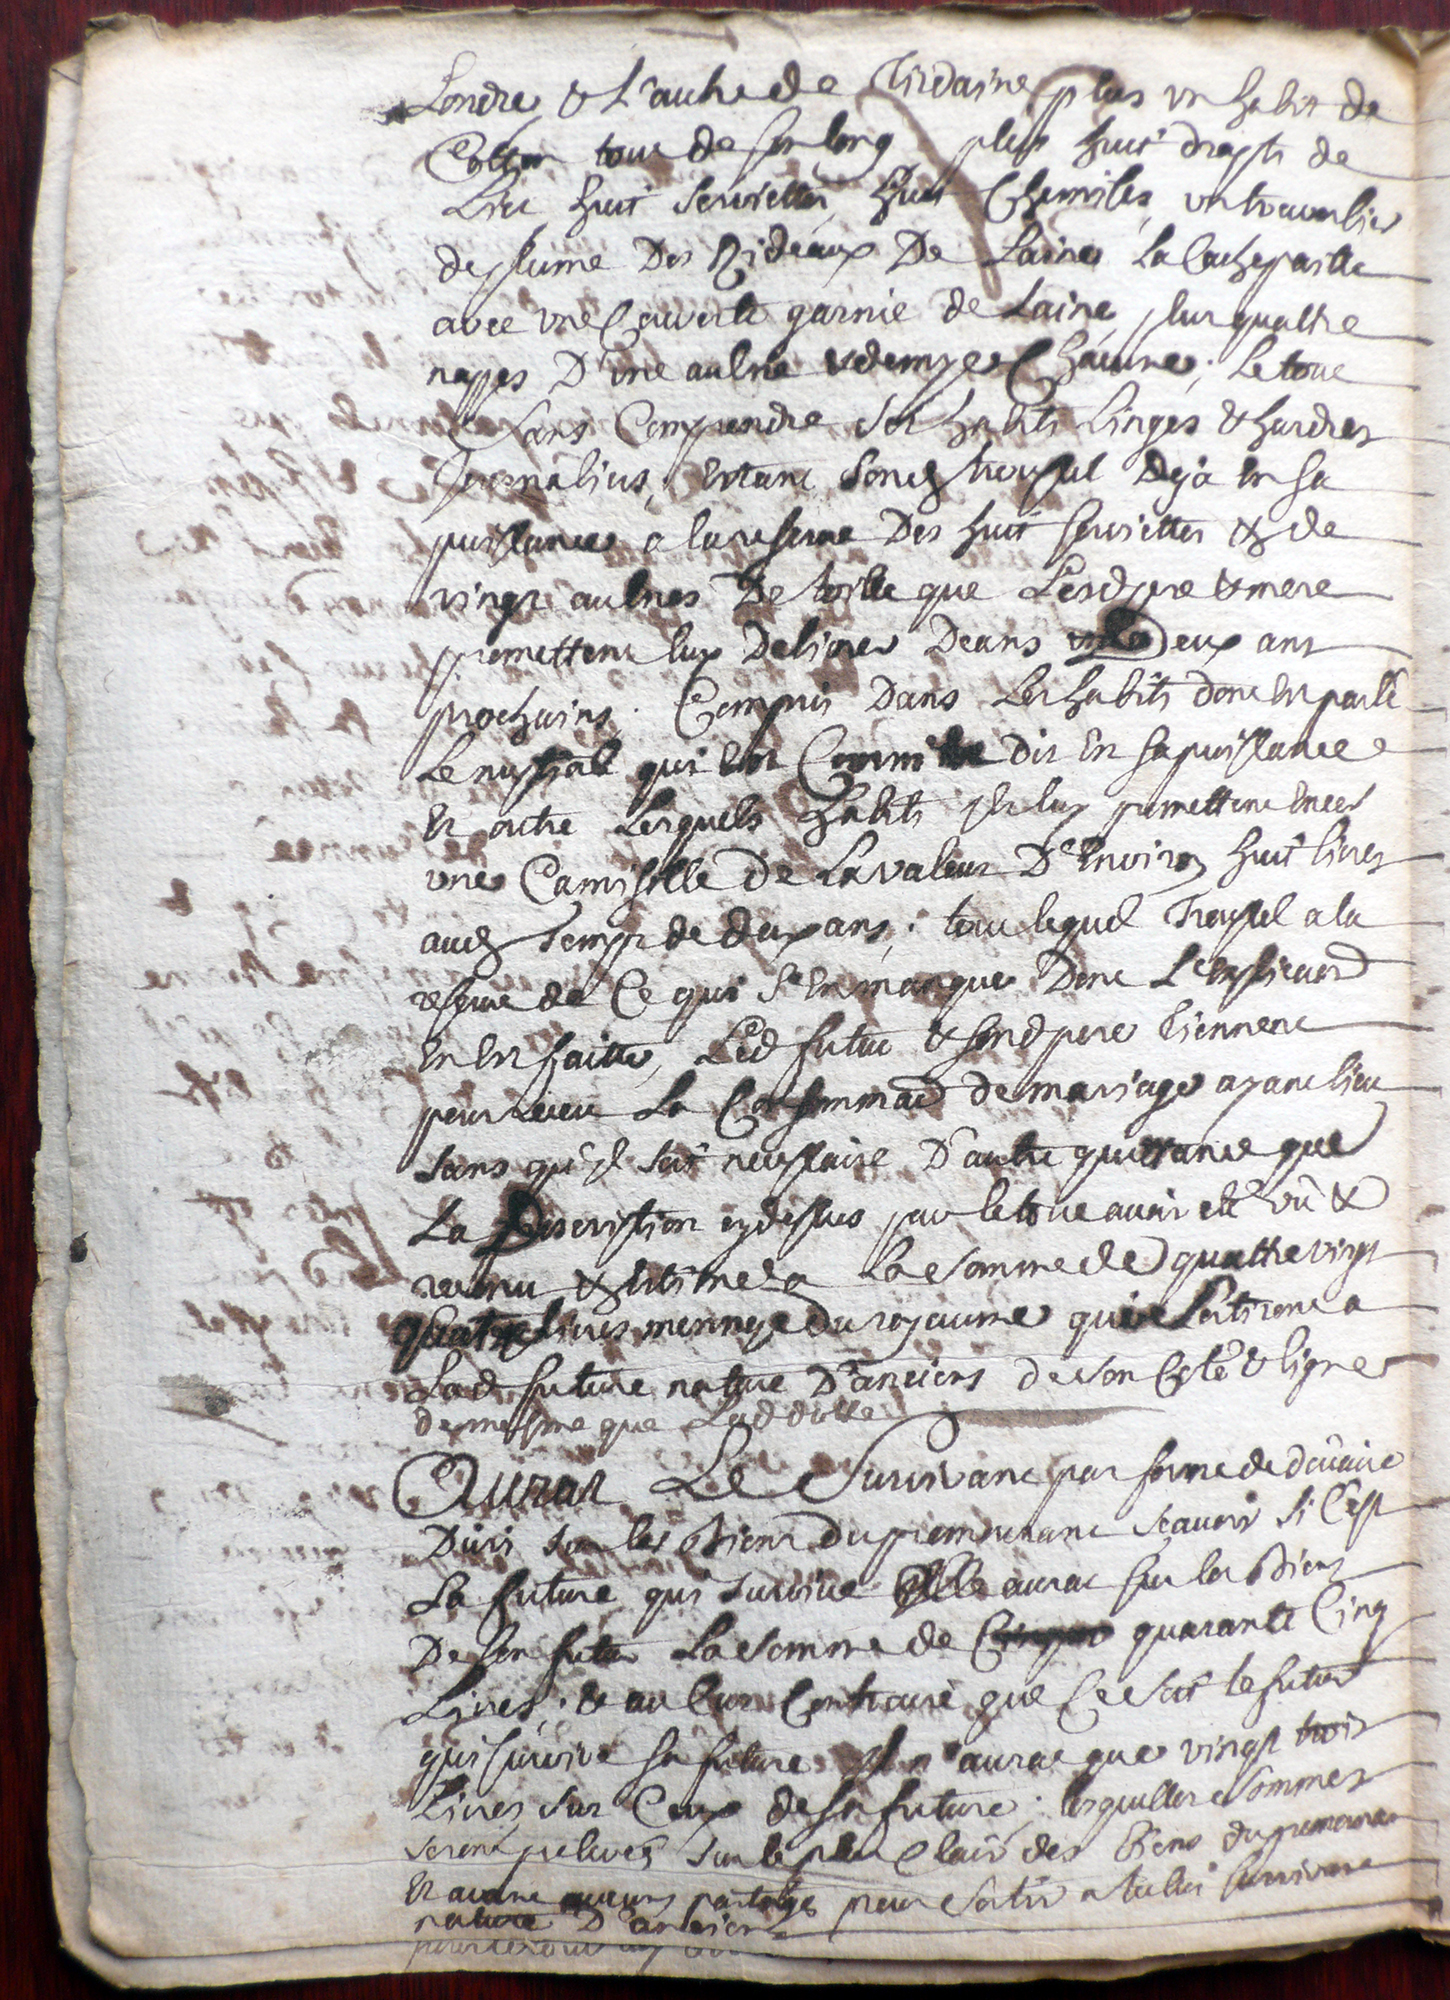 Londre & L'autre de Tirdaine plus un habit de
Cotton tout de son long plus huit drapts de
Lict huit serviettes huit Chemises, un traverlier
de plume Des Rideaux De Laine La Cachepaille
avec une Couverte garnie de Laine, plus quattre
nappes D'une aulne & demye Chacune; Le tout
Sans Comprendre Ses habits Linges & hardes
Journaliers, Estant Sond trousel Deja En sa
puissance a la reserve Des huit serviettes & de
vingt aulnes De toille que Lesd pere & mere
promettent luy Delivrer Deans Deux ans
prochains. Compris Dans Les habits dont Est parlé
Le nuptial qui Est Comme dit En sa puissance
Et outre Lesquels habits Ils luy promettent Encor
une Camisolle De La valeur D'Environ huit livres
aud Temps de deux ans; tout lequel Trousel a la
reserve de Ce qui s'En manque Dont L'Expression
En Est faitte, Led futur & sond pere Tiennent
pour receu La Consommaon de mariage ayant lieu
sans qu'Il soit necessaire D'autre quittance que
La Description cy dessus pour le tout avoir esté vû &
reconnu & Estimé a La somme de quattre vingt
quatre livres monnoye du royaume qui sortiront a
Lad future nature D'anciens de son Costé & ligne
de mesme que Lad dotte
Aurat Le Survivant par forme de doüaire
Divis sur les Biens du premourant sçavoir si C'est
La future qui survive Elle aurat sur les Biens
De son futur La somme de quarante Cinq
Livres, & au Cas Contraire que Ce soit le futur
qui survive sa future Il n'aurat que vingt trois
Livres sur Ceux de sa future; lesquelles sommes
seront prelevés sur le plus Clair des Biens du premourant
Et avant aucuns partages pour sortir a tel survivant
nature D'anciens